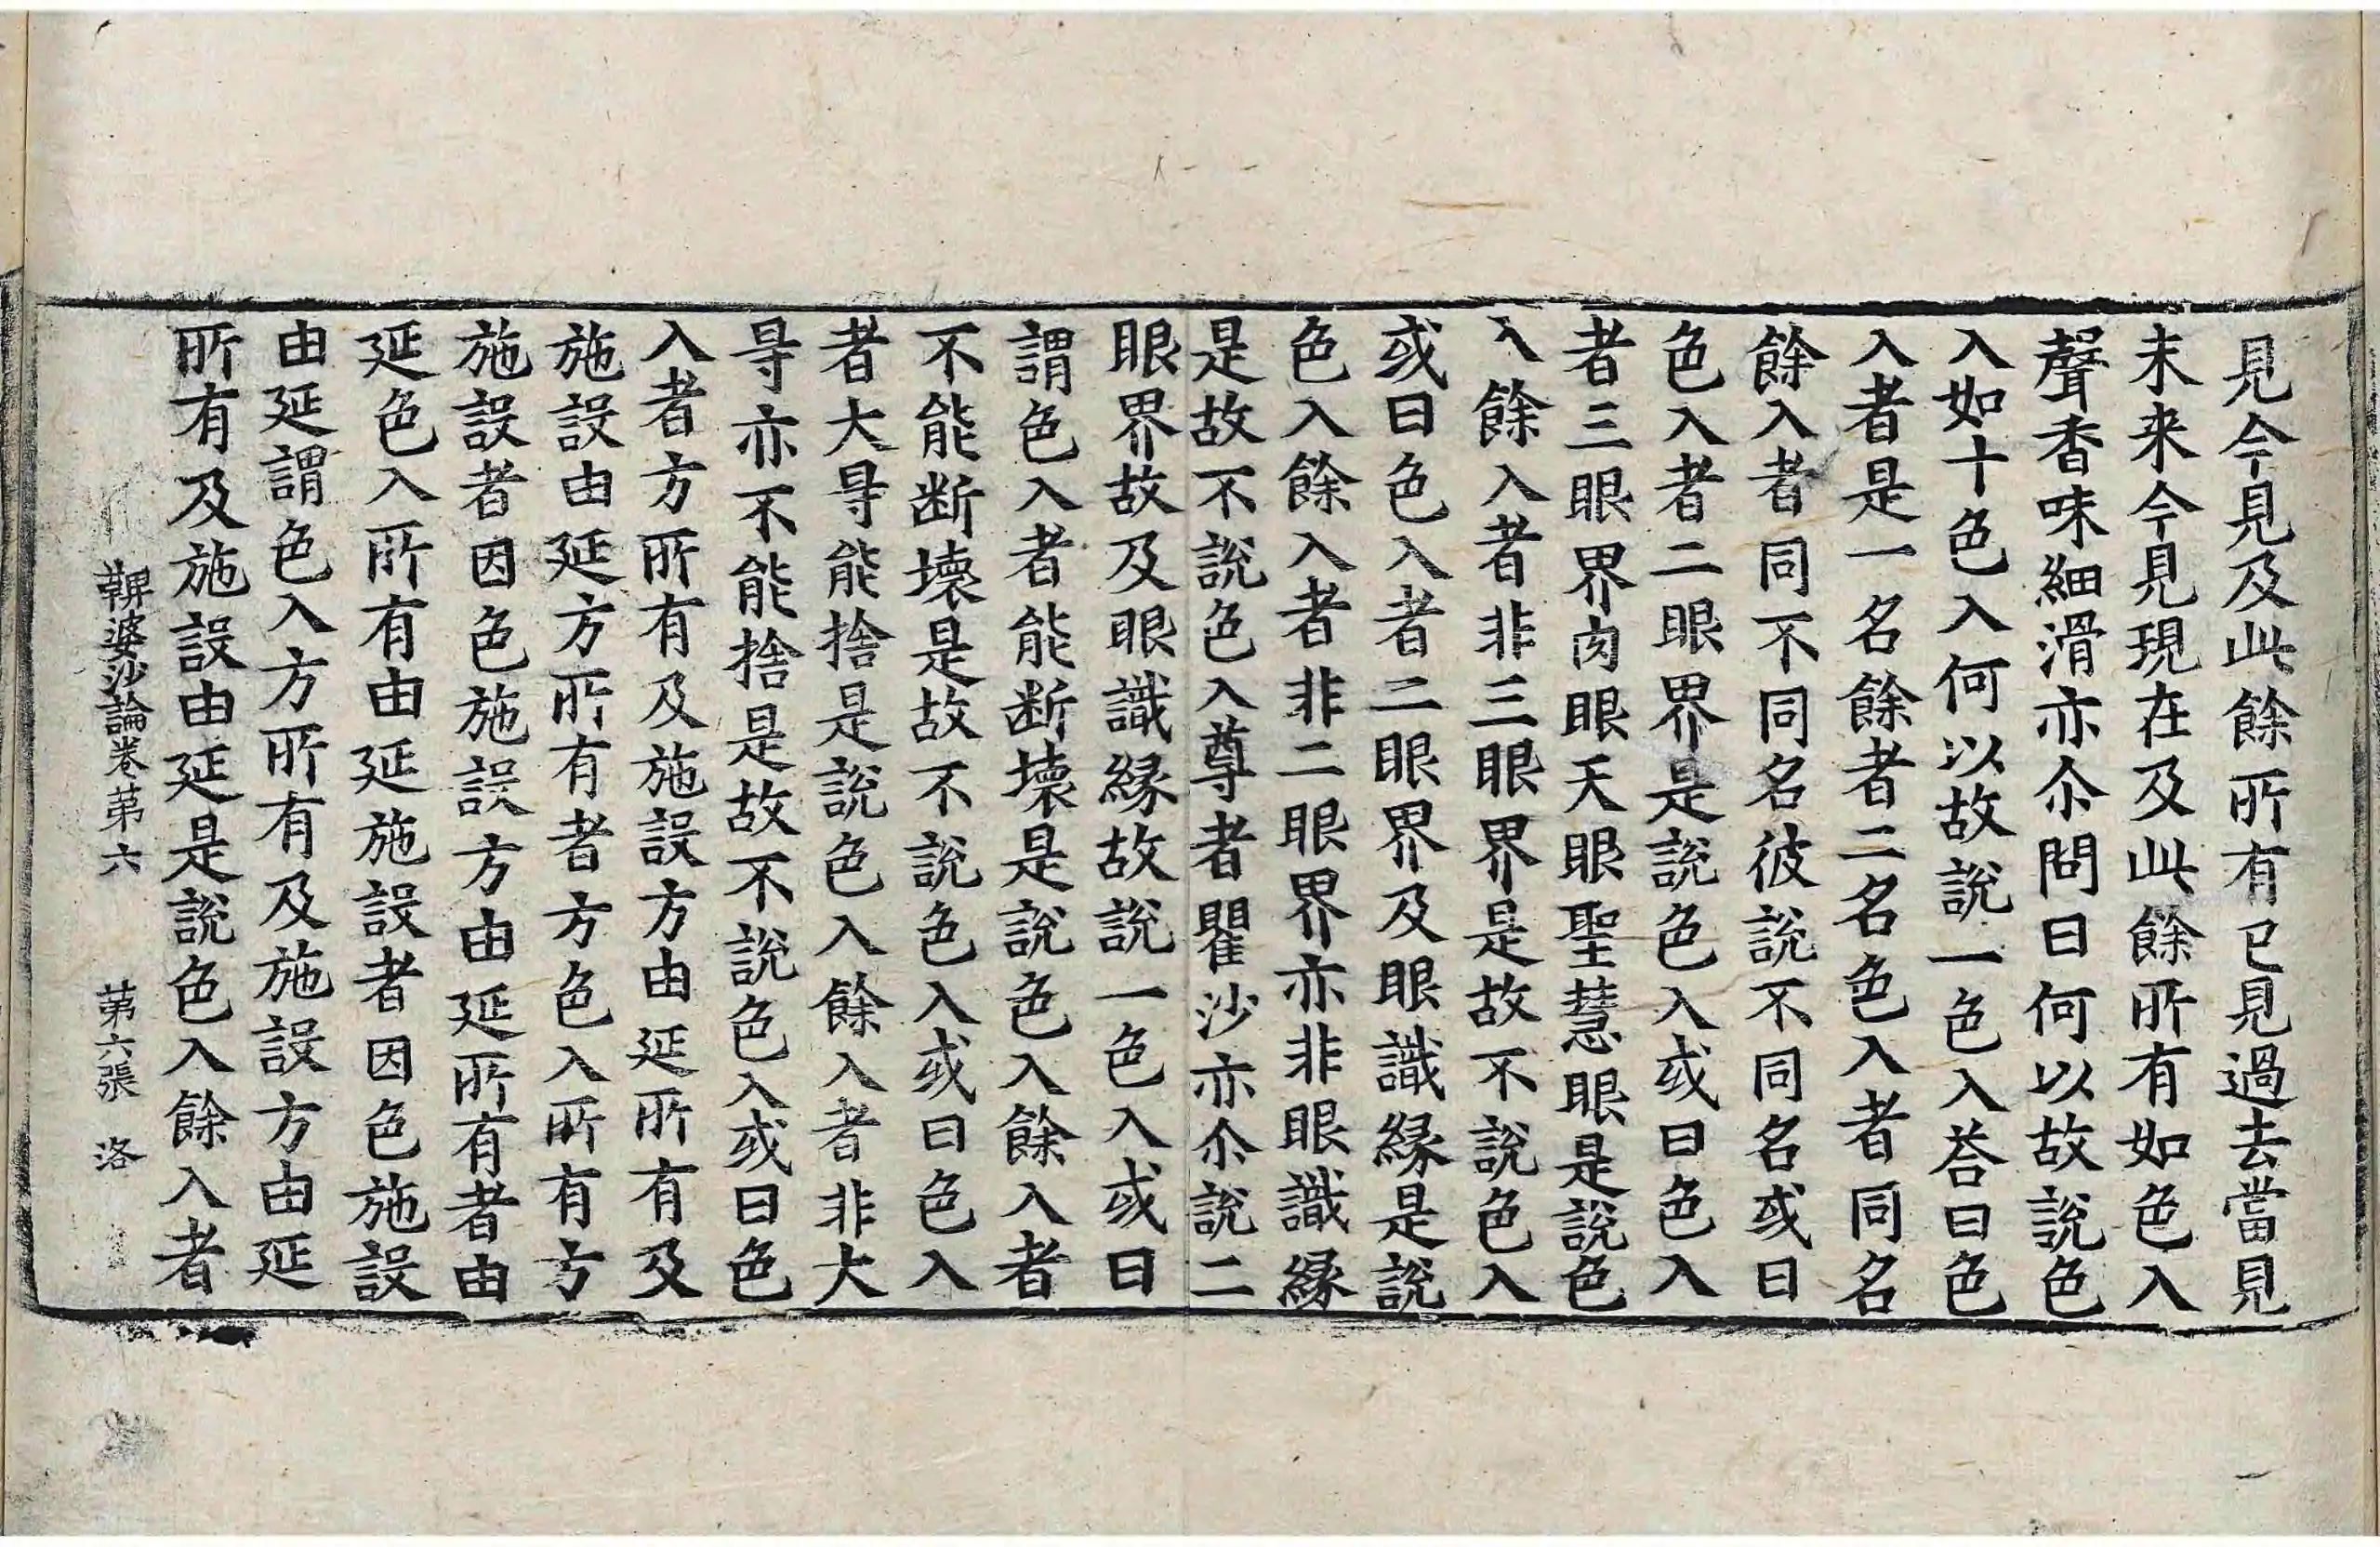 見今見及此餘所有已見過去當見
末来今見現在及此餘所有如色入
聲香味細滑亦尒問曰何以故說色
入如十色入何以故說一色入荅曰色
入者是一名餘者二名色入者同名
餘入者同不同名彼說不同名或曰
色入者二眼界是說色入或曰色入
者三眼界肉眼天眼聖慧眼是說色
入餘入者非三眼界是故不說色入
或曰色入者二眼界及眼識緣是說
色入餘入者非二眼界亦非眼識緣
是故不說色入尊者瞿沙亦尒說二
眼界故及眼識緣故說一色入或曰
謂色入者能断壞是說色入餘入者
不能断壞是故不說色入或曰色入
者大㝵能捨是說色入餘入者非大
㝵亦不能捨是故不說色入或曰色
入者方所有及施設方由延所有及
施設由延方所有者方色入所有方
施設者因色施設方由延所有者由
延色入所有由延施設者因色施設
由延謂色入方所有及施設方由延
所有及施設由延是說色入餘入者
鞞婆沙論卷第六 第六張 洛